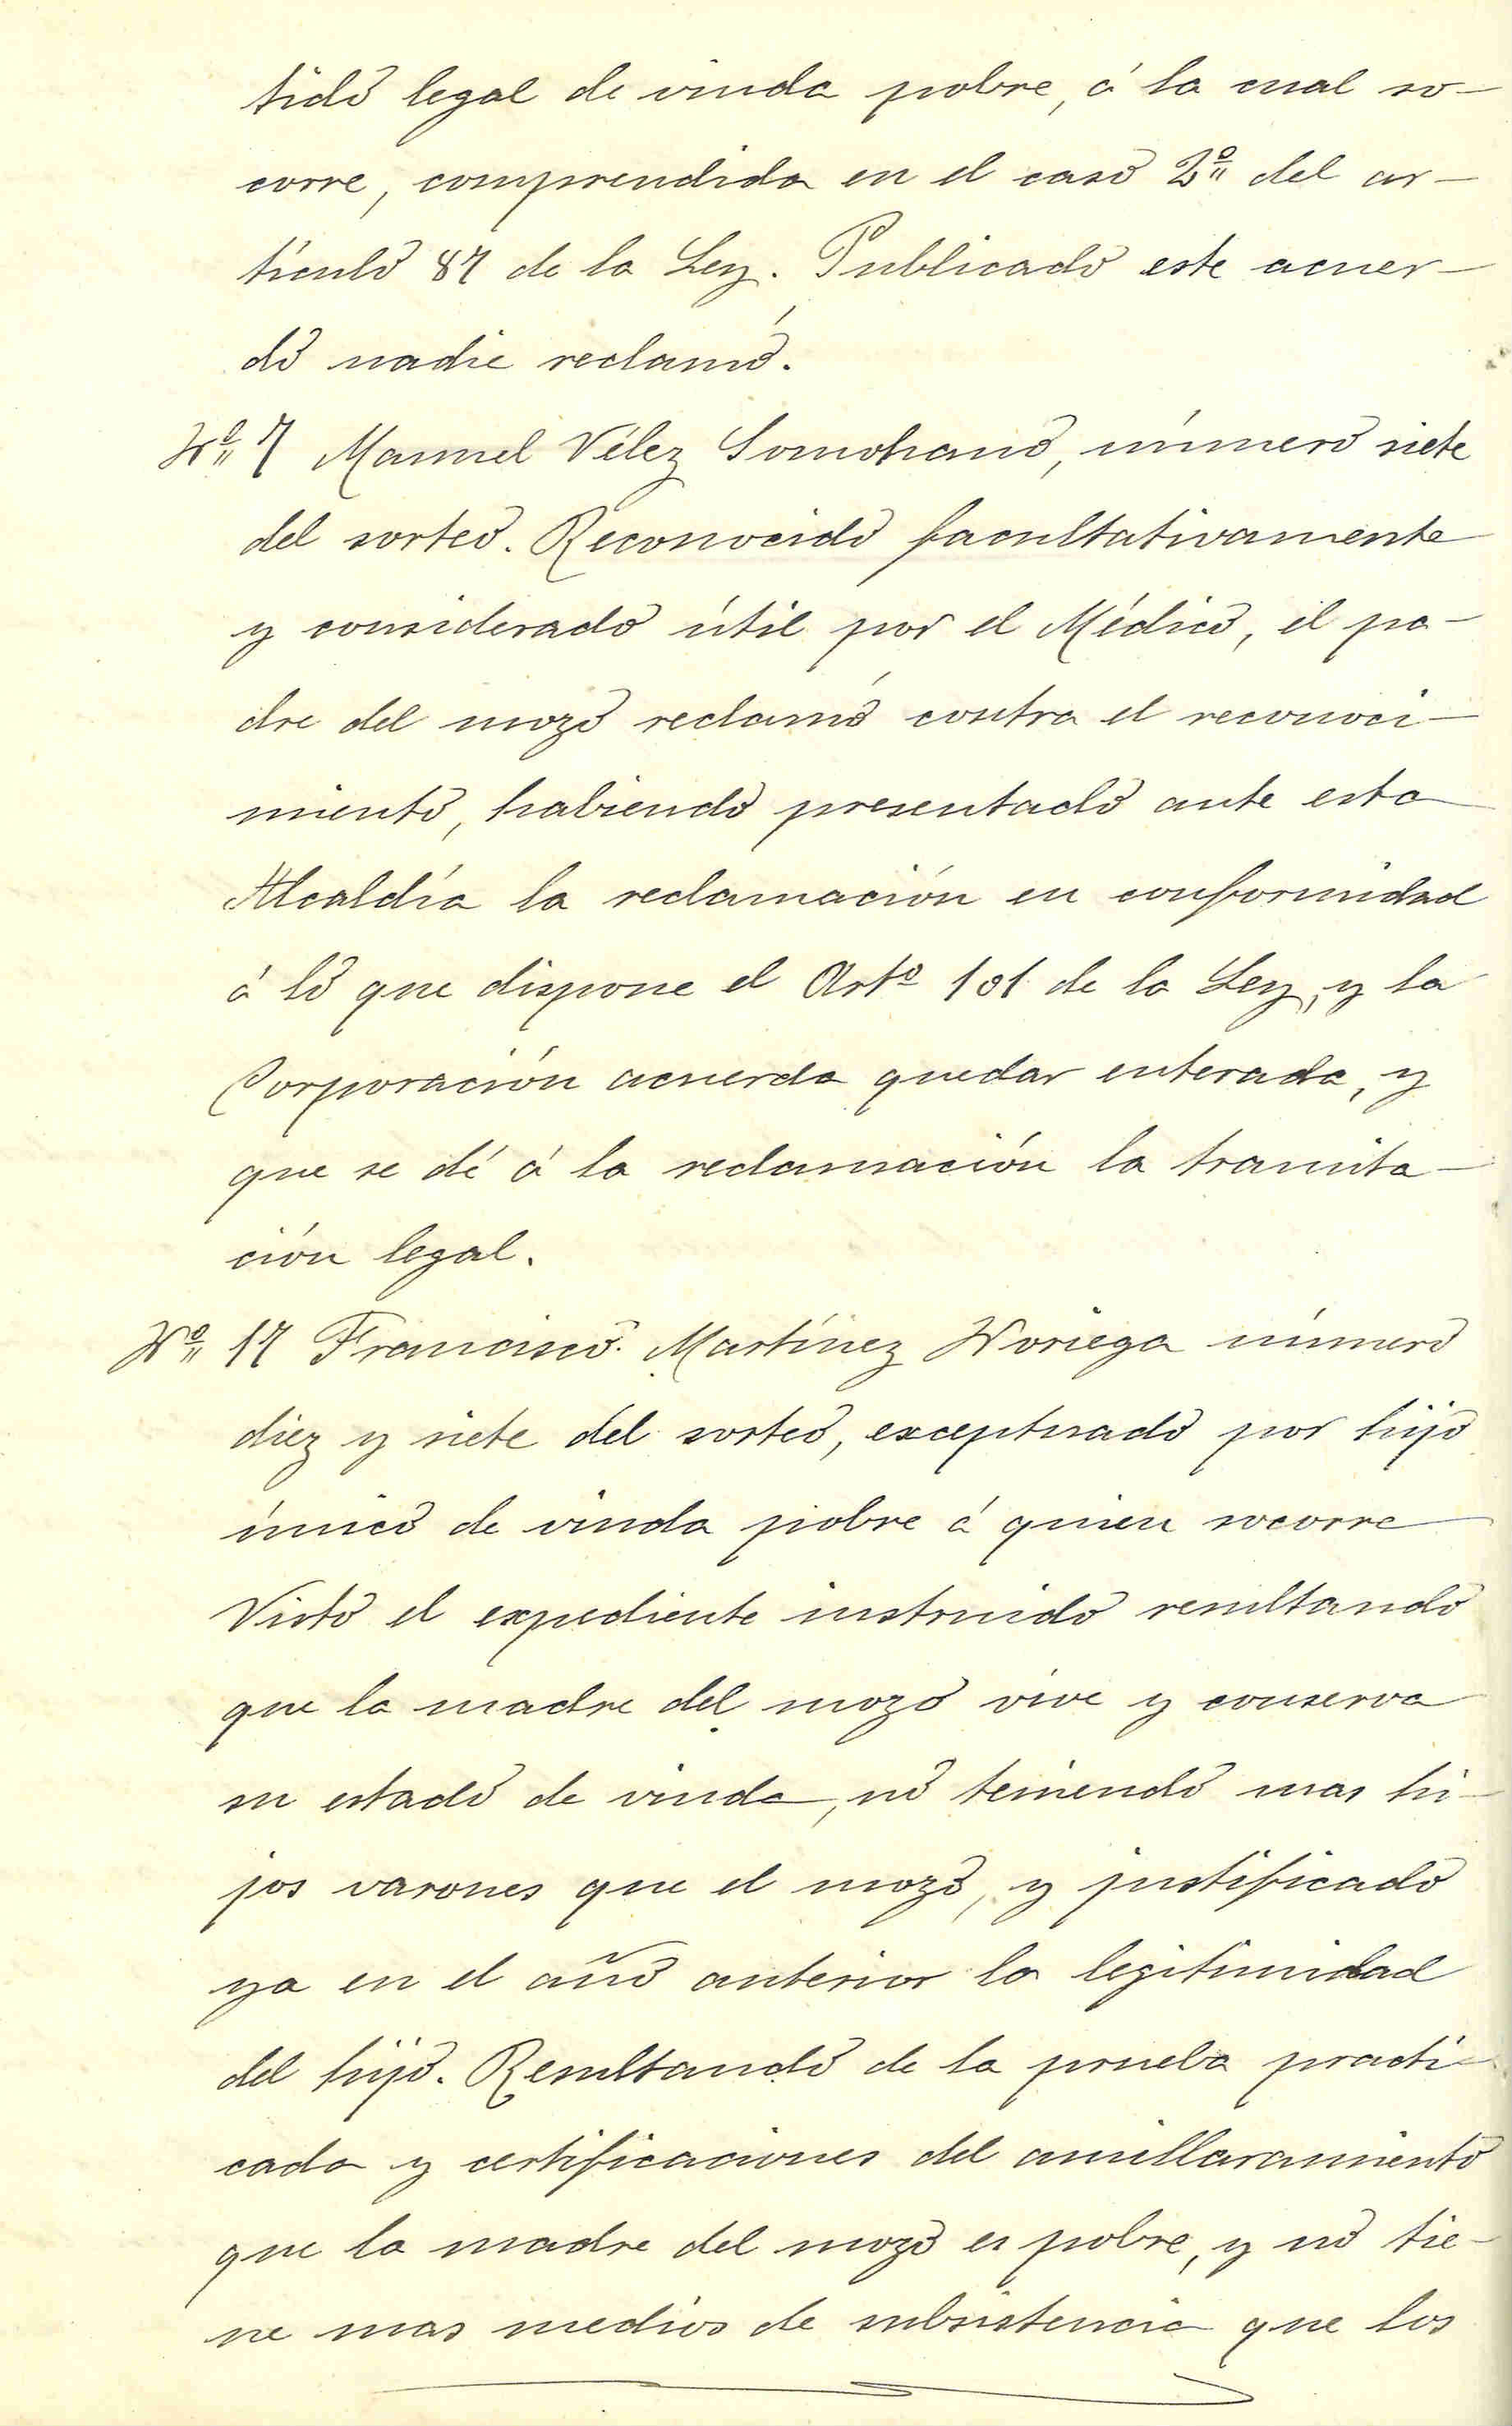 tido legal de viuda pobre, á la cual so-
corre, comprendida en el caso 2º del ar-
tículo 87 de la Ley. Publicado este acuer-
do nadie reclamó.
Nº 7 Manuel Vélez Somohano, número siete
del sorteo. Reconocido facultativamente
y considerado útil por el Médico, el pa-
dre del mozo reclamó contra el reconoci-
miento, habiendo presentado ante esta
Alcaldía la reclamación en conformidad
á lo que dispone el Artº 101 de la Ley, y la
Corporación acuerda quedar enterada, y
que se dé á la reclamación la tramita-
ción legal.
Nº 17 Francisco Martínez Noriega número
diez y siete del sorteo, exceptuado por hijo
único de viuda pobre á quien socorre
Visto el expediente instruido resultando
que la madre del mozo vive y conserva
su estado de viuda, no teniendo mas hi-
jos varones que el mozo, y justificado
ya en el año anterior la legitimidad
del hijo. Resultando de la prueba practi-
cada y certificaciones del amillaramiento
que la madre del mozo es pobre, y no tie-
ne mas medios de subsistencia que los